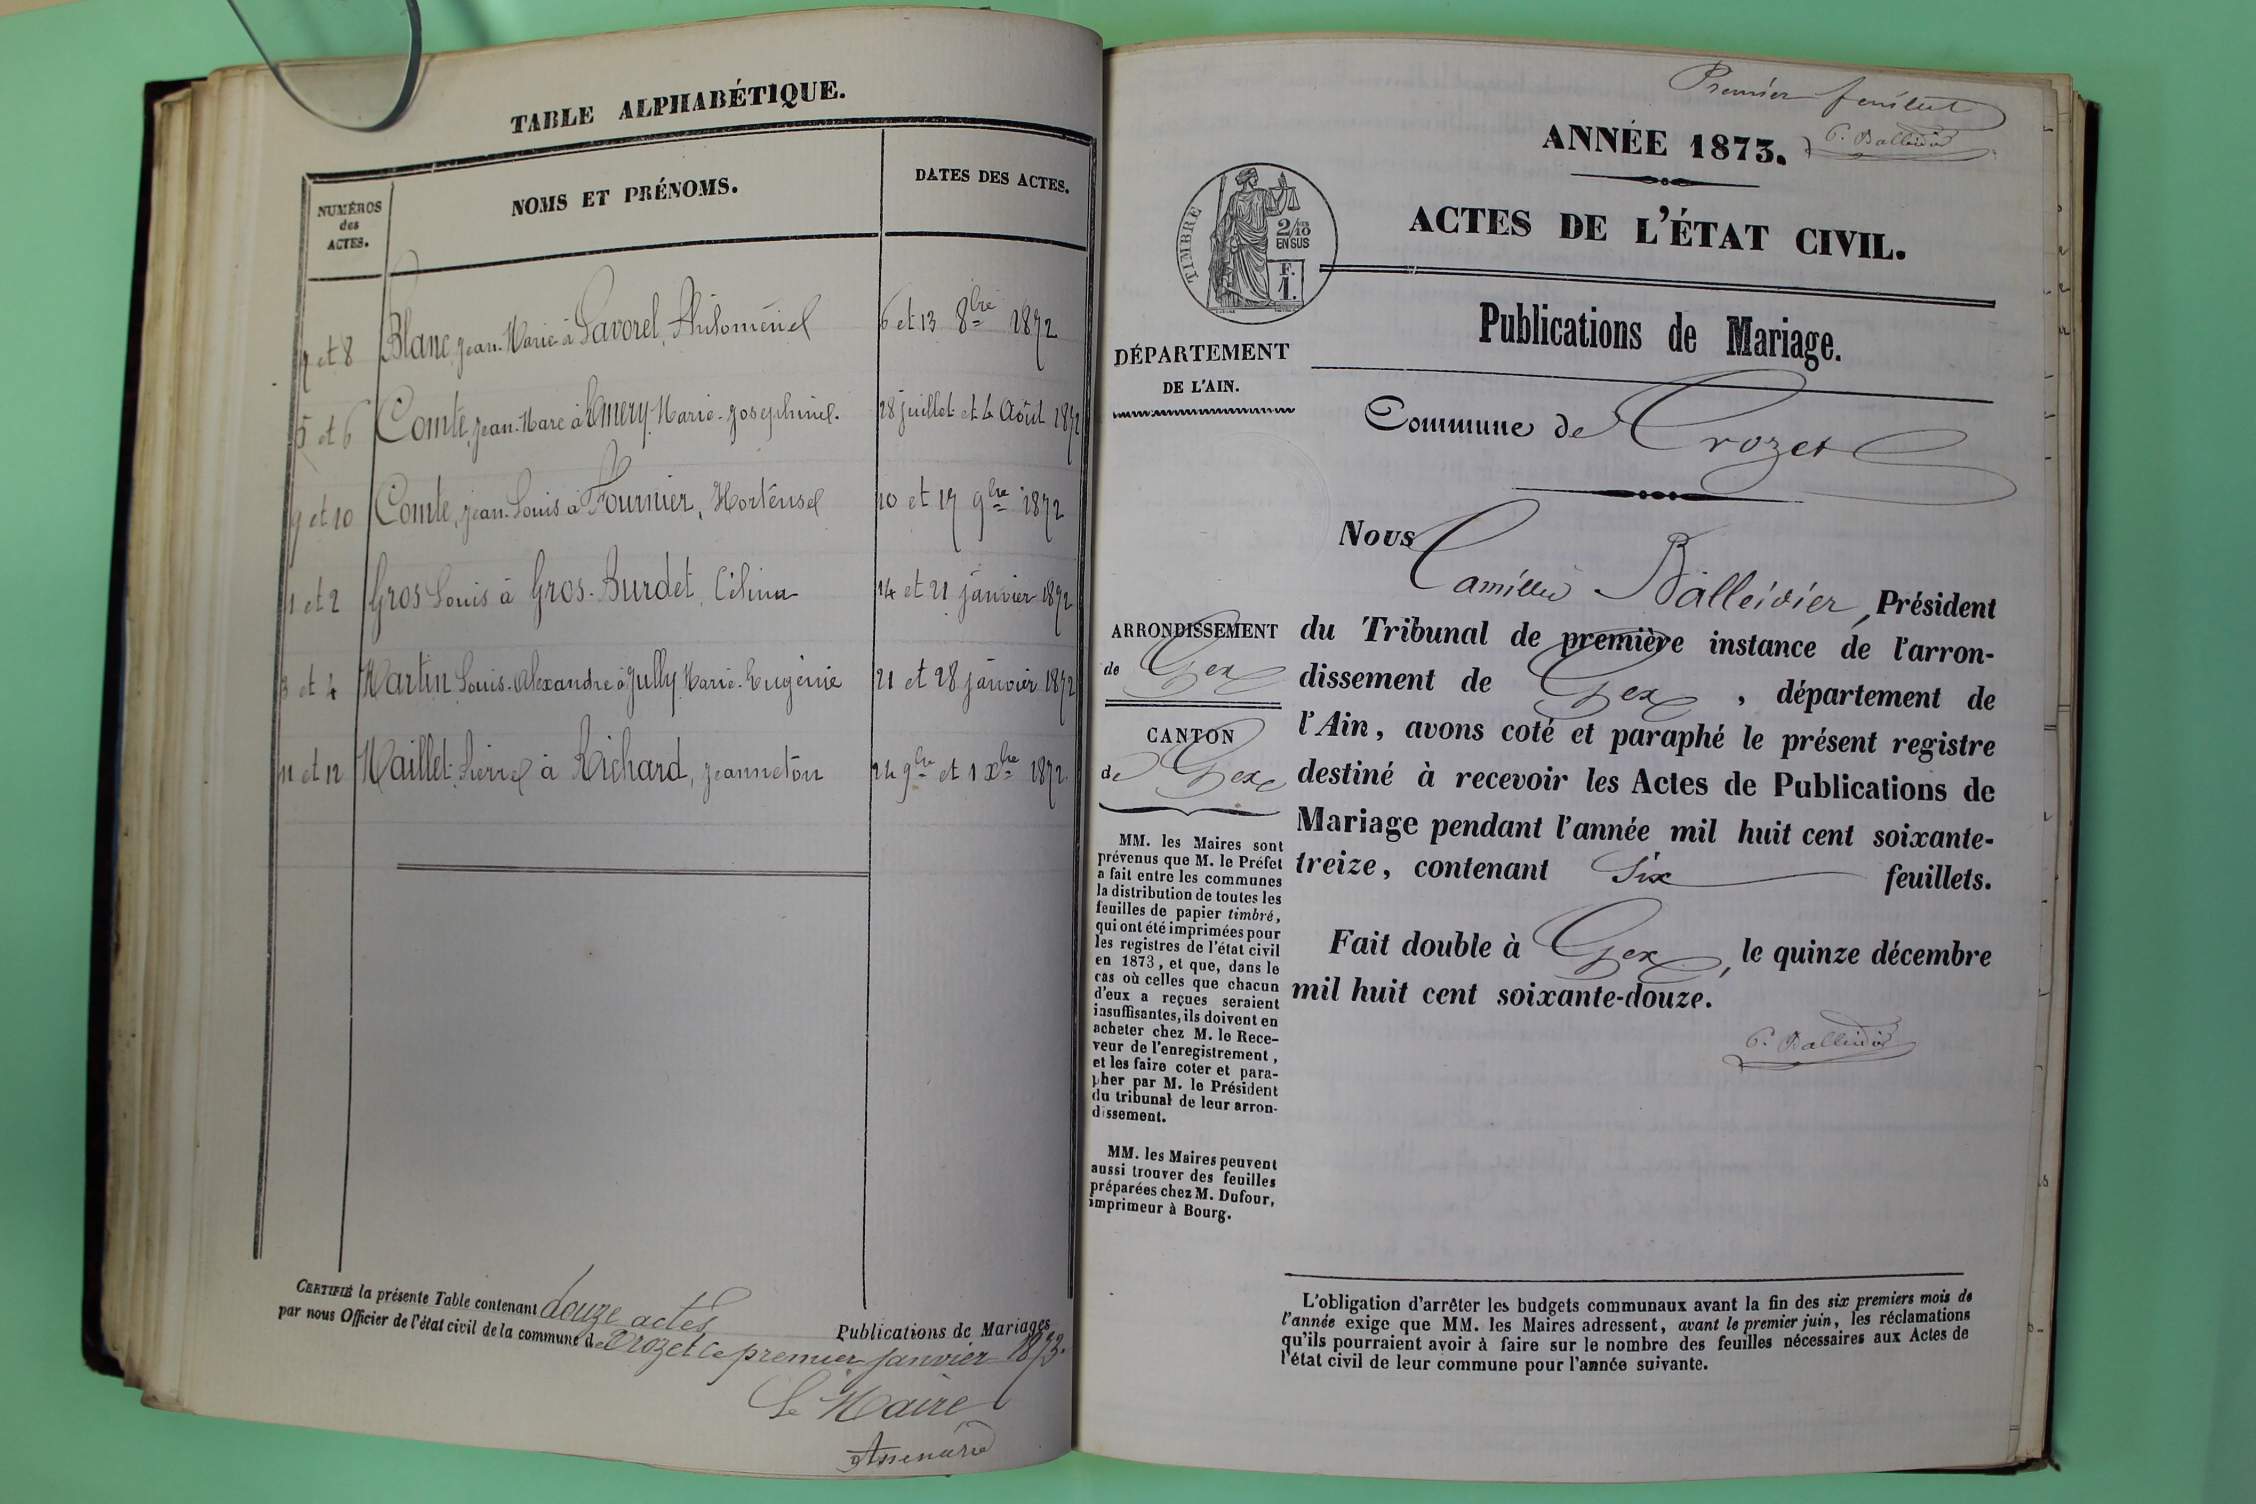 TABLE ALPHABÉTIQUE.
NUMÉROS
des
ACTES.
NOMS ET PRÉNOMS.
DATES DES ACTES.
7 et 8 Blanc, Jean-Marie à Lavorel, Philomène 6 et 13 8bre 1872
5 et 6 Comte, Jean-Marc à Emery, Marie-Joséphine. 28 juillet et 4 Août 1872
9 et 10 Comte, Jean-Louis à Fournier, Hortense 10 et 17 9bre 1872
1 et 2 Gros Louis à Gros-Burdet, Célina 14 et 21 janvier 1872
3 et 4 Martin Louis-Alexandre à Jully Marie-Eugénie 21 et 28 janvier 1872
11 et 12 Maillet Pierre à Richard, Jeanneton 24 9bre et 1 Xbre 1872.
CERTIFIÉ la présente Table contenant douze actes
par nous Officier de l'état civil de la commune de Crozet ce premier janvier 1873.
Publications de Mariages
Le Maire
Premier feuillet
C. Balleidier
ANNÉE 1873.
ACTES DE L'ÉTAT CIVIL.
TIMBRE
2/10
EN SUS
F.
1.
Publications de Mariage.
DÉPARTEMENT
DE L'AIN.
Commune de Crozet
ARRONDISSEMENT
de Gex
CANTON
de Gex
MM. les Maires sont
prévenus que M. le Préfet
a fait entre les communes
la distribution de toutes les
feuilles de papier timbré,
qui ont été imprimées pour
les registres de l'état civil
en 1873, et que, dans le
cas où celles que chacun
d'eux a reçues seraient
insuffisantes, ils doivent en
acheter chez M. le Rece-
veur de l'enregistrement,
et les faire coter et para-
pher par M. le Président
du tribunal de leur arron-
dissement.
MM. les Maires peuvent
aussi trouver des feuilles
préparées chez M. Dufour,
imprimeur à Bourg.
Nous Camille Balleidier, Président
du Tribunal de première instance de l'arron-
dissement de Gex, département de
l'Ain, avons coté et paraphé le présent registre
destiné à recevoir les Actes de Publications de
Mariage pendant l'année mil huit cent soixante-
treize, contenant Six feuillets.
Fait double à Gex, le quinze décembre
mil huit cent soixante-douze.
C. Balleidier
L'obligation d'arrêter les budgets communaux avant la fin des six premiers mois de
l'année exige que MM. les Maires adressent, avant le premier juin, les réclamations
qu'ils pourraient avoir à faire sur le nombre des feuilles nécessaires aux Actes de
l'état civil de leur commune pour l'année suivante.